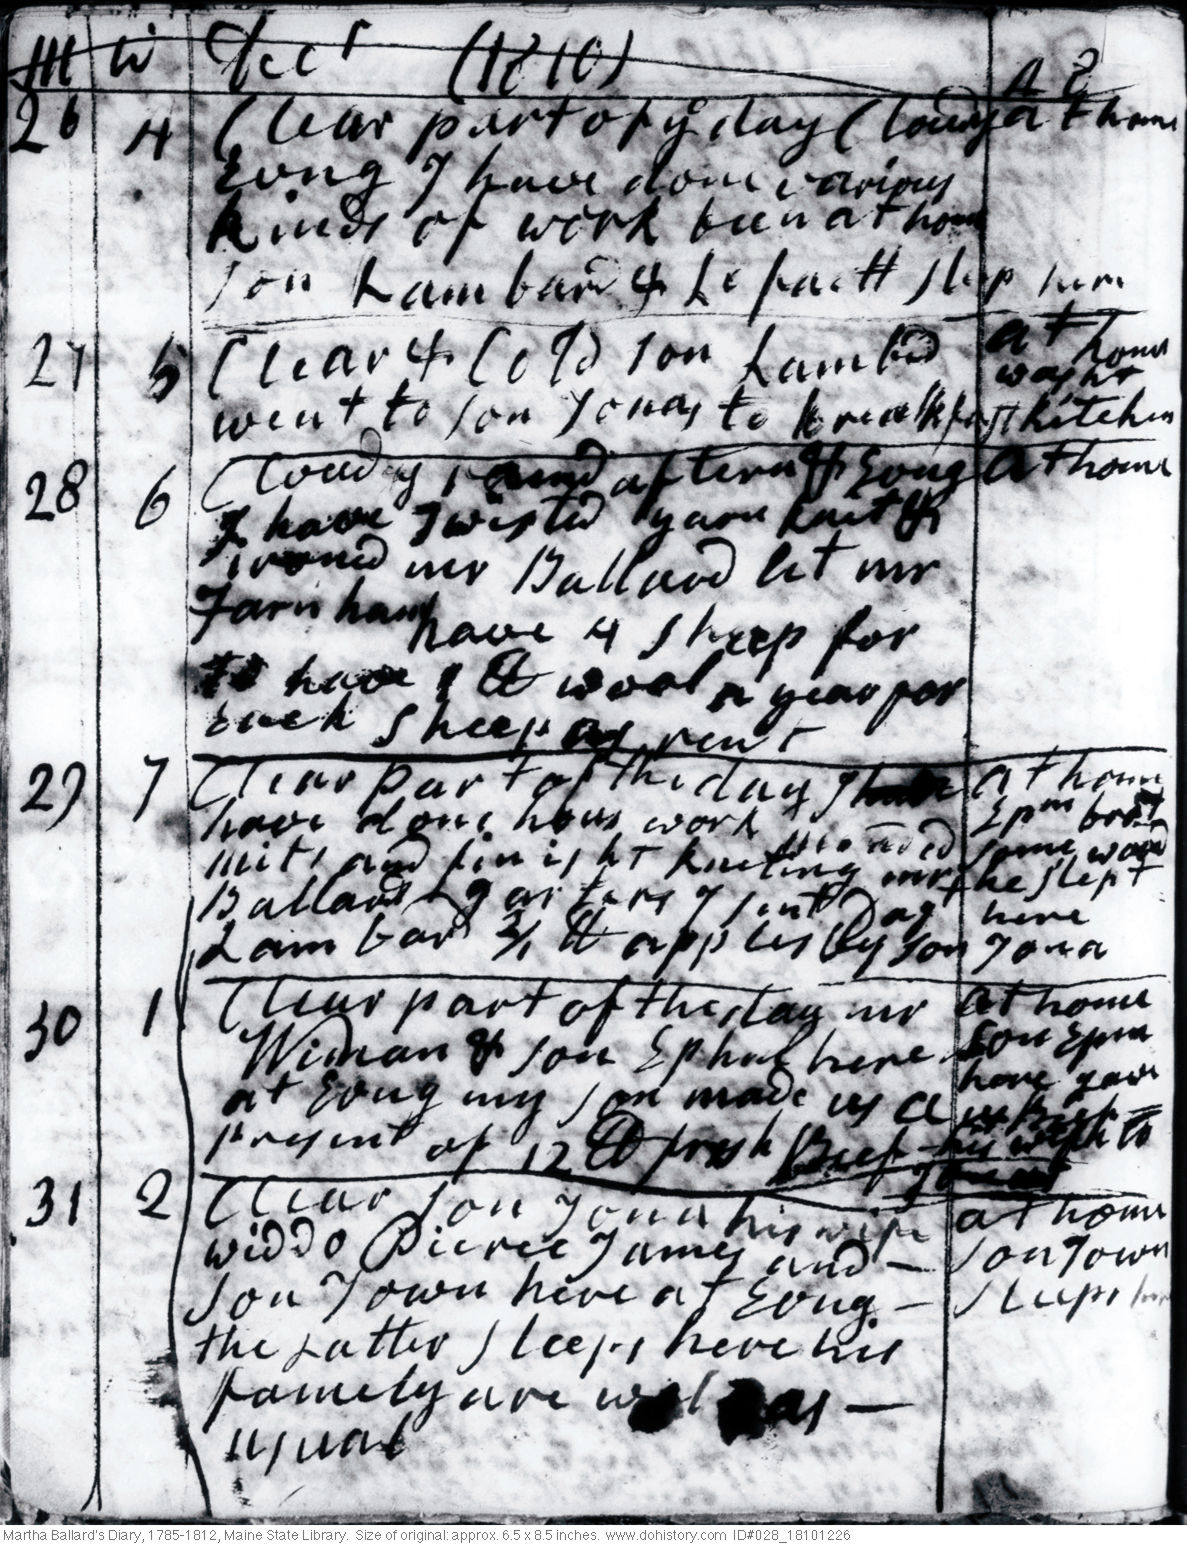 M W Dec r (1810)
26 4 Clear part of ye day Cloudy at home
Evng I have done various
kinds of work been at home
son Lambard & Lifaett sleep here
27 5 Clear & Cold son Lambrd at home
washt
went to son Jonas to breakfast kitchen
28 6 Cloudy aftern & Evng at home
I have Twisted yarn knit &
ironed mr Ballard let mr
Farnham
have 4 sheep for
to have 1 lb wool a year for
Each sheep as rent
29 7 Clear part of the day I have at home
have done hous work Epm brot
mits and finisht kniting mended some wood
Ballards garters I sent Dag mr he slept
here
Lambard 3/4 lb apples by son Jona
30 1 Clear part of the day mr at home
Widman & son Ephm here son Epm
at Evng my son made us a have gave
us Beef
present of 12 lb fresh Beef his wish to
31 2 Clear son Jona his wife at home
widdo Pierce James and – son Town
son Town here at Evng – sleeps here
the Latter sleeps here his
famely are well as —
usual
Martha Ballard's Diary, 1785-1812, Maine State Library. Size of original: approx. 6.5 x 8.5 inches. www.dohistory.com ID#028_18101226